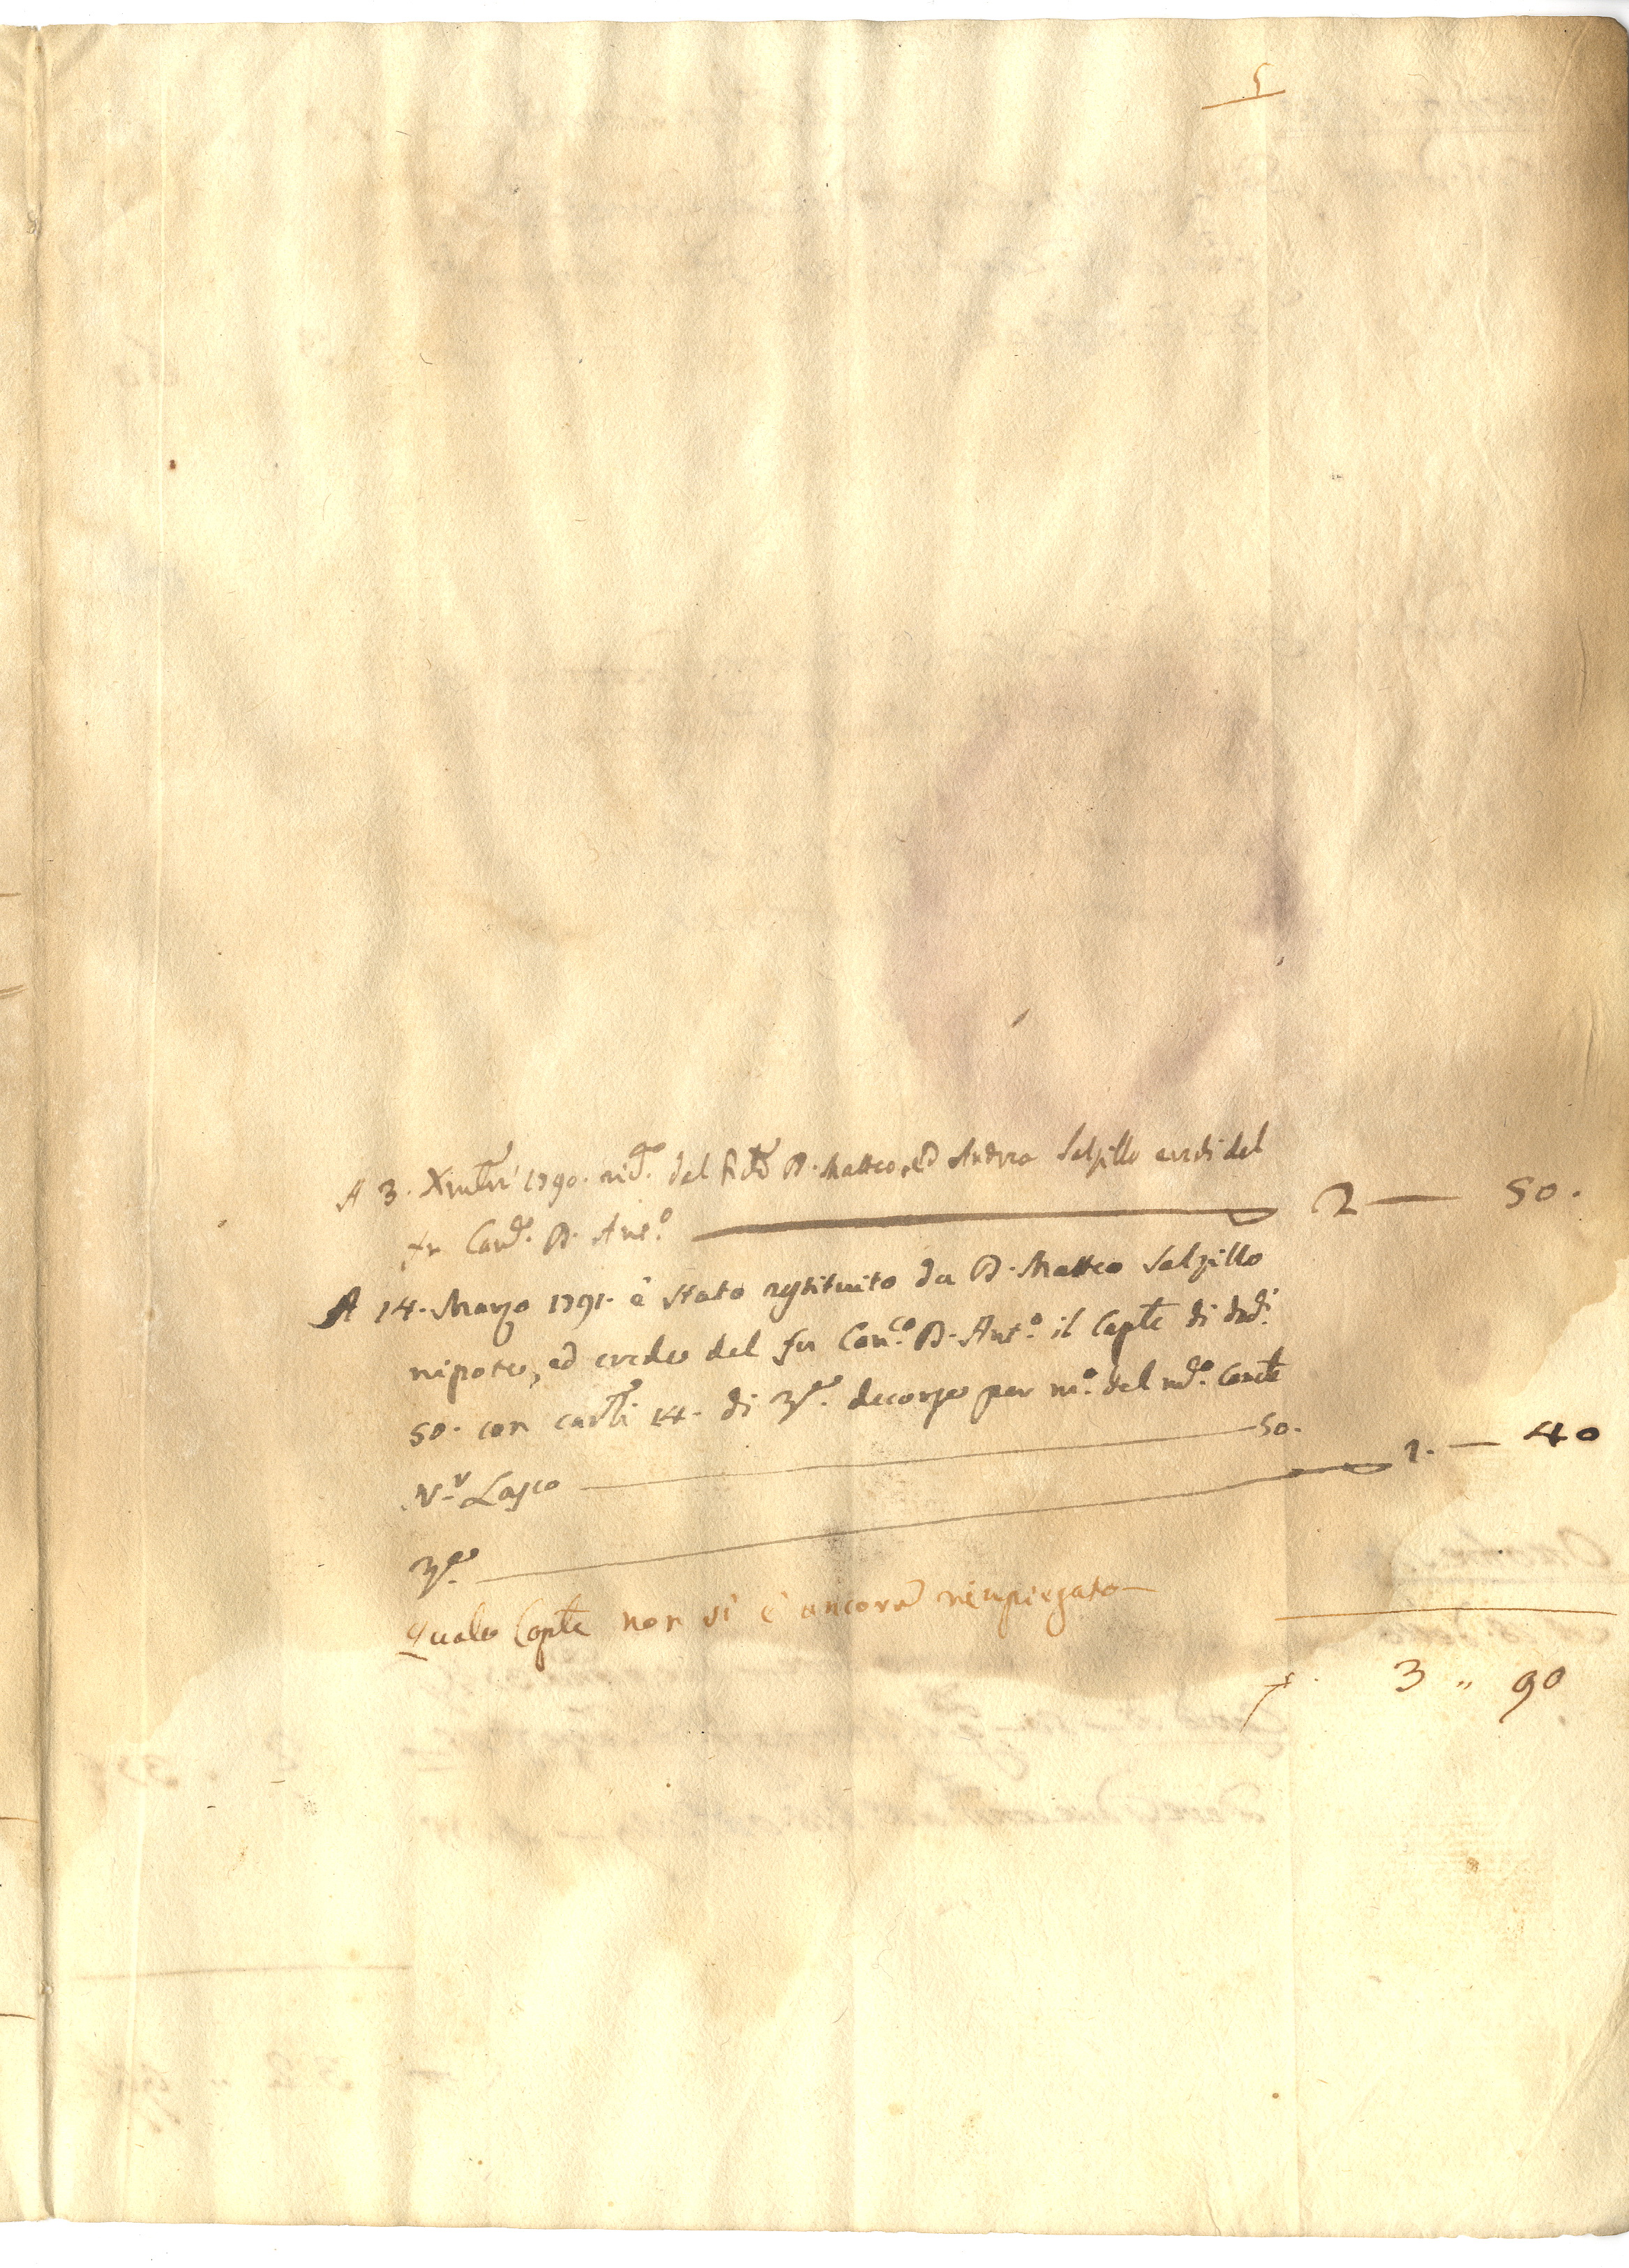 5
A 3. Xmbri 1790. rid. dal D. Matteo, ed Andrea Salzillo eredi del
fu Can.co D. Ant.o 2 — 50.
A 14. Marzo 1791. è stato restituito da D. Matteo Salzillo
nipote, ed erede del fu Can.co D. Ant.o il Caple di
50. con carli 14. di 3e. decorse per m.o del md.o
N.r Lasco 50.
3e. 1. — 40
Quale Caple non si è ancora rimpiegato —
3 " 90